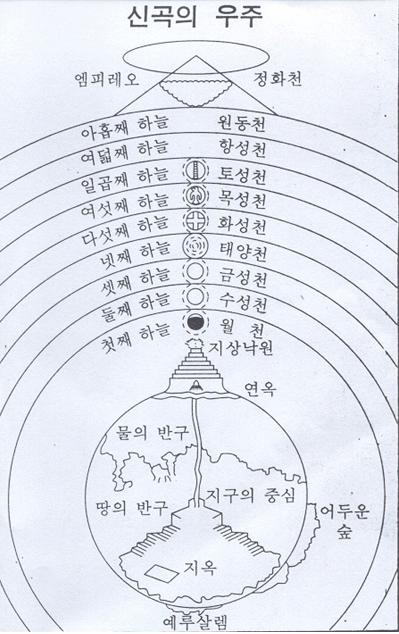 신곡의 우주
엠피레오 정화천
아홉째 하늘 원동천
여덟째 하늘 항성천
일곱째 하늘 토성천
여섯째 하늘 목성천
다섯째 하늘 화성천
넷째 하늘 태양천
셋째 하늘 금성천
둘째 하늘 수성천
첫째 하늘 월 천
지상낙원
연옥
물의 반구
땅의 반구
지구의 중심
어두운
숲
지옥
예루살렘